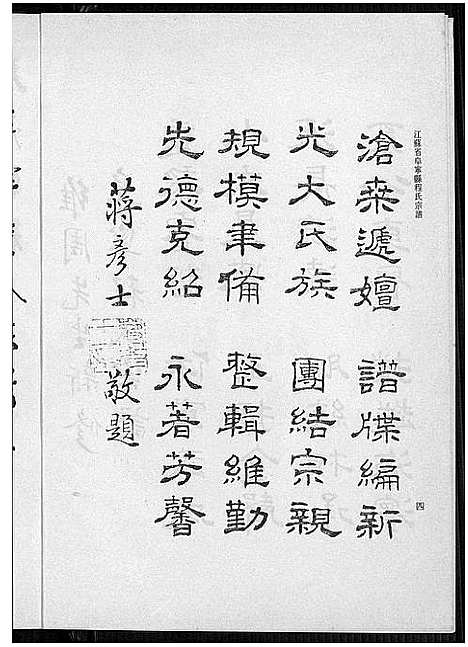 江蘇省阜寧縣程氏宗譜
滄桒遞嬗 譜牒編新
光大氏族 團結宗親
規模聿備 整輯維勤
先德克紹 永著芳馨
蔣彥士 敬題
四